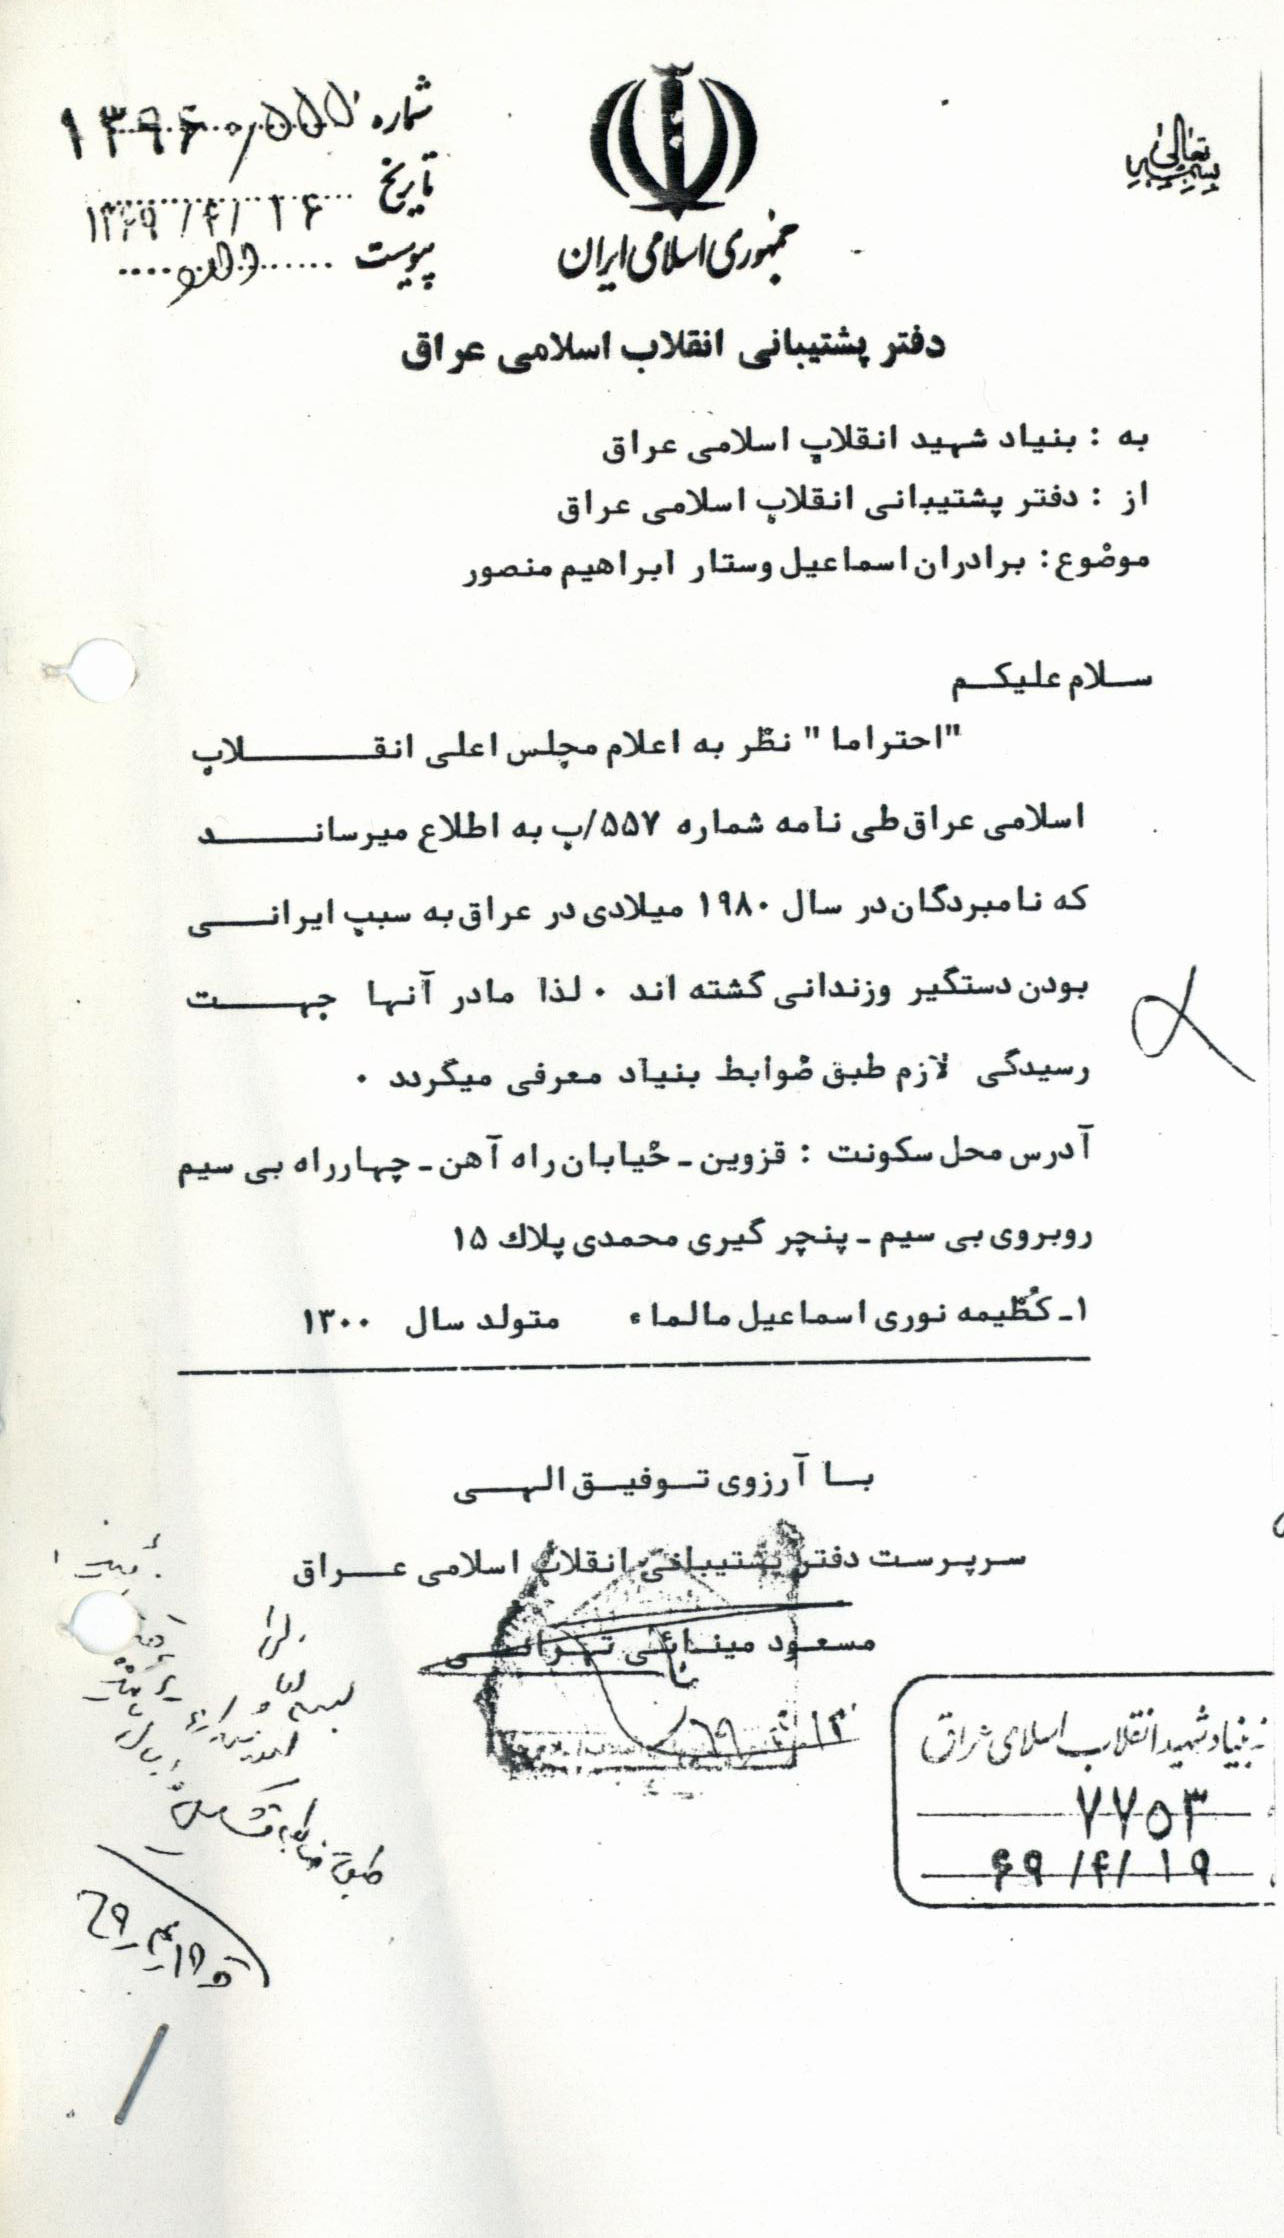 بسمه تعالی
جمهوری اسلامی ایران
شماره
تاریخ ۱۳۶۹/۴/۱۶
پیوست
دفتر پشتیبانی انقلاب اسلامی عراق
به : بنیاد شهید انقلاب اسلامی عراق
از : دفتر پشتیبانی انقلاب اسلامی عراق
موضوع : برادران اسماعیل وستار ابراهیم منصور
سلام علیکم
"احتراما" نظر به اعلام مجلس اعلی انقلاب
اسلامی عراق طی نامه شماره ۵۵۷/پ به اطلاع میرساند
که نامبردگان در سال ۱۹۸۰ میلادی در عراق به سبب ایرانی
بودن دستگیر وزندانی گشته اند ۰ لذا مادر آنها جهت
رسیدگی لازم طبق ضوابط بنیاد معرفی میگردد ۰
آدرس محل سکونت : قزوین ـ خیابان راه آهن ـ چهارراه بی سیم
روبروی بی سیم ـ پنچر گیری محمدی پلاك ۱۵
۱ـ کظیمه نوری اسماعیل مالماء متولد سال ۱۳۰۰
با آرزوی توفیق الهی
سرپرست دفتر پشتیبانی انقلاب اسلامی عراق
مسعود مینائی تهرانی
بنیاد شهید انقلاب اسلامی عراق
۷۷۵۳
۶۹/۴/۱۹